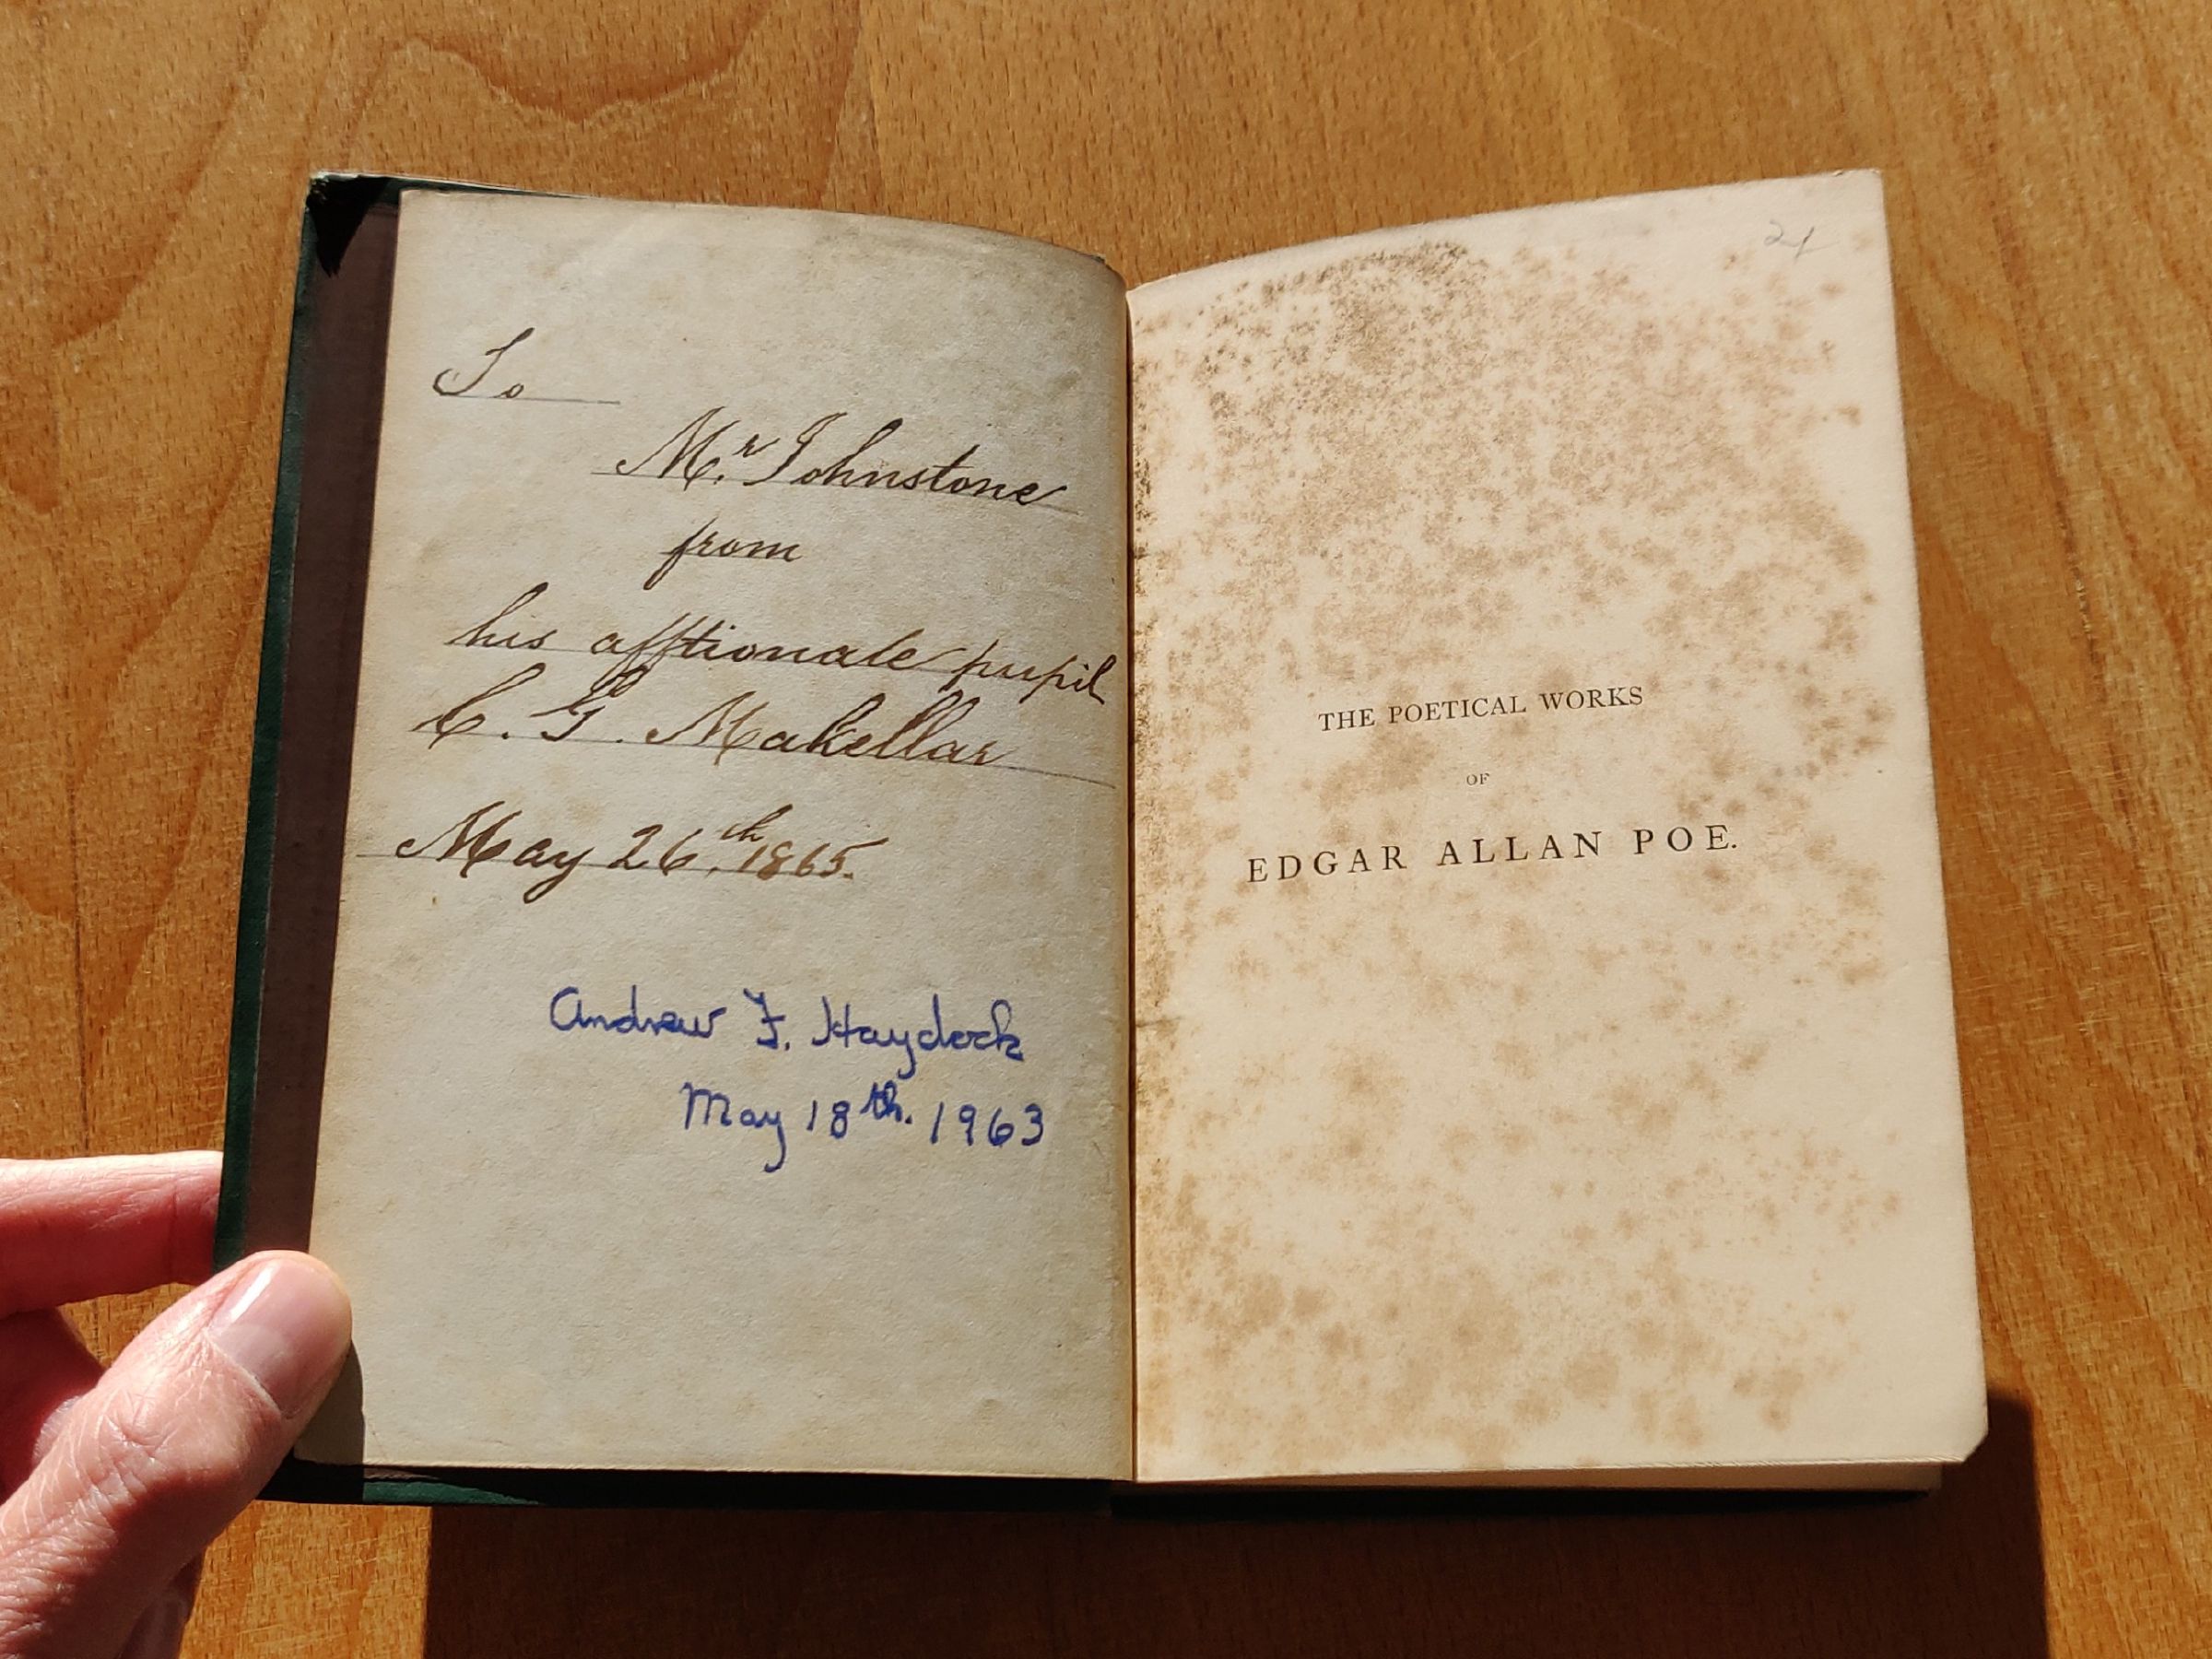 To
Mr. Johnstone
from
his afftionate pupil
C. G. Makellar
May 26th. 1865.
Andrew F. Haydock
May 18th. 1963
THE POETICAL WORKS
OF
EDGAR ALLAN POE.